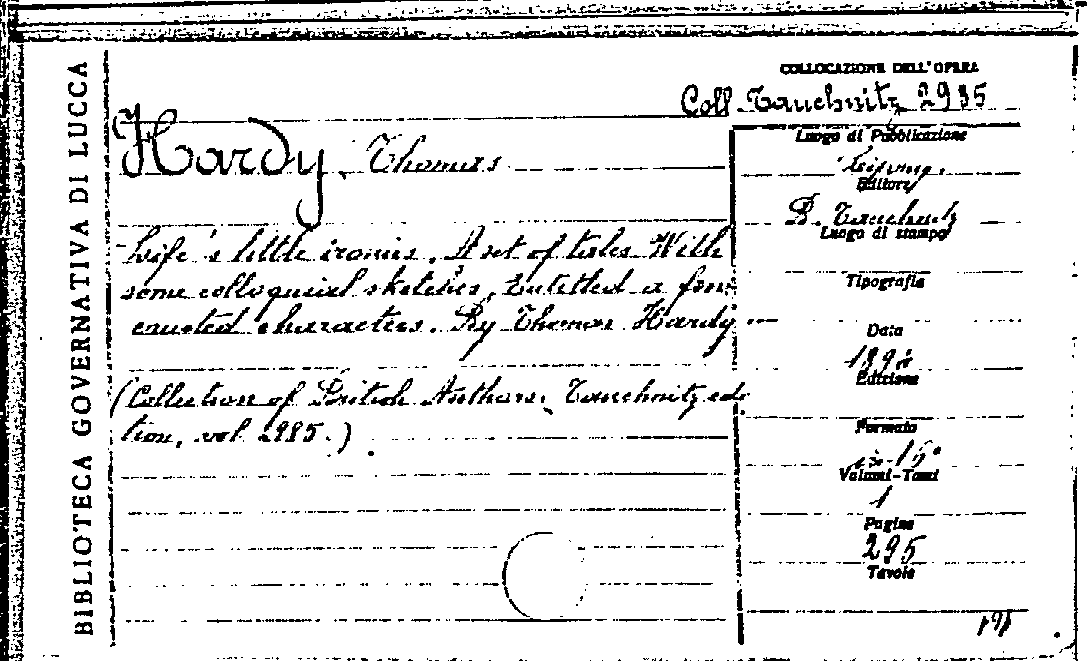 BIBLIOTECA GOVERNATIVA DI LUCCA
COLLOCAZIONE DELL'OPERA
Coll. Tauchnitz 2985
Hardy, Thomas
Life's little ironies. A set of tales With
some colloquial sketches, Entitled a few
crusted characters. By Thomas Hardy
(Collection of British Authors. Tauchnitz edi
tion, vol. 2985.)
Luogo di Pubblicazione
Editore
B. Tauchnitz
Luogo di stampa
Tipografia
Data
Edizione
Formato
Volumi-Tomi
1
Pagine
295
Tavole